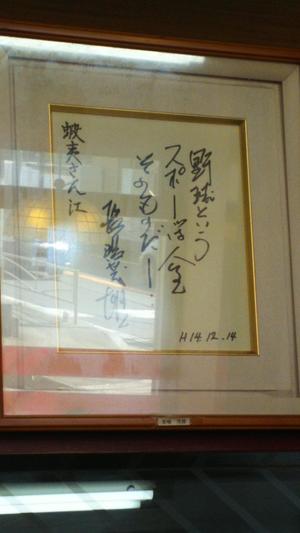 野球という
スポーツは人生
そのものだ!
長嶋茂雄
蝦夷さん江
H14.12.14